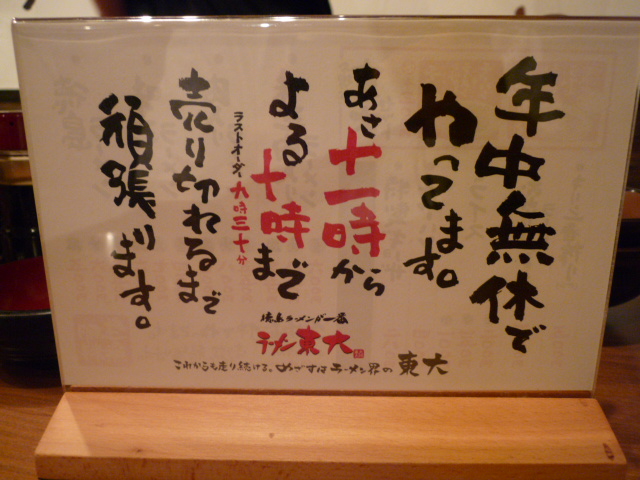 年中無休で
やってます。
あさ十一時から
よる十時まで
ラストオーダー九時三十分
売り切れるまで
頑張ります。
徳島ラーメンが一番
ラーメン東大
これからも走り続ける。めざすはラーメン界の東大